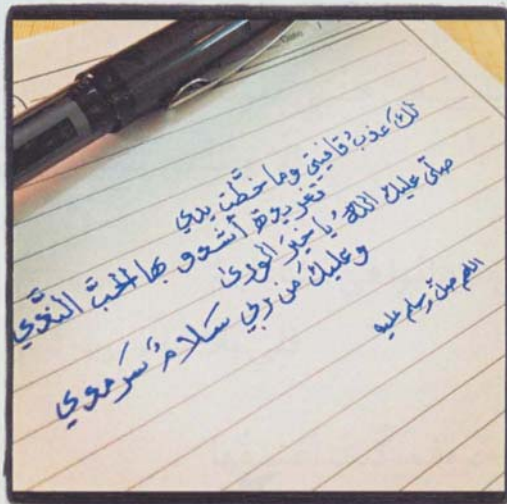 لكَ عذبُ قافيتي وما خطَّت يدي
تغريدة أشدو بها الحبَّ الندي
صلّى عليك اللهُ يا خيرَ الورى
وعليكَ من ربي سَلامٌ سَرمدي
اللهم صلّ وسلم عليه